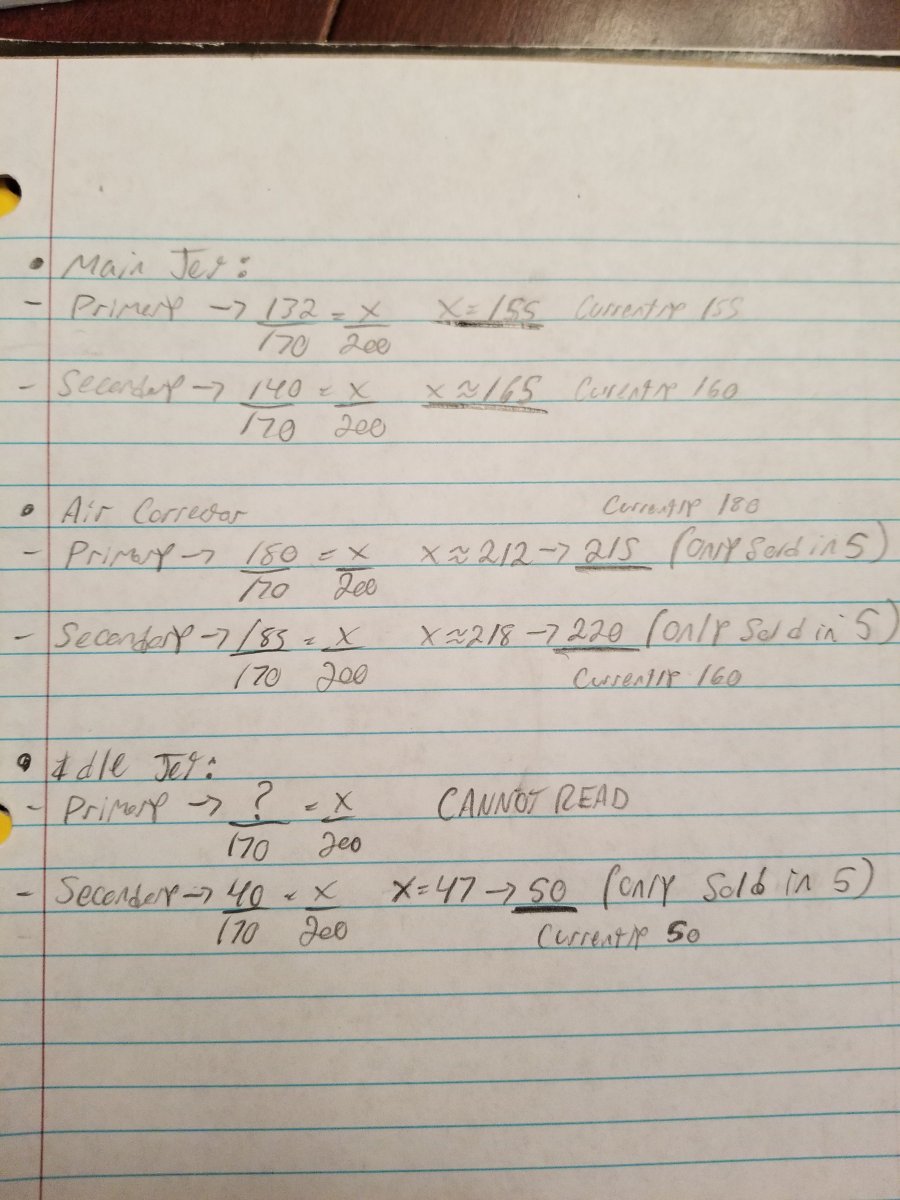 • Main Jet:
- Primary → 132/170 = x/200 x = 155 Currently 155
- Secondary → 140/170 = x/200 x ≈ 165 Currently 160
• Air Corrector Currently 180
- Primary → 180/170 = x/200 x ≈ 212 → 215 (Only Sold in 5)
- Secondary → 185/170 = x/200 x ≈ 218 → 220 (Only Sold in 5)
Currently 160
• Idle Jet:
- Primary → ?/170 = x/200 CANNOT READ
- Secondary → 40/170 = x/200 x = 47 → 50 (Only Sold in 5)
Currently 50